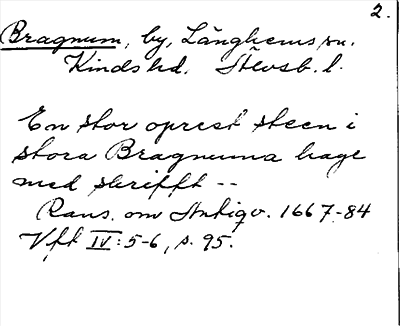 2.
Bragnum, by, Länghems sn.
Kinds hd. Älvsb. l.
En stor oprest steen i
stora Bragnums hage
med skrifft --
Rans. om Antiqv. 1667-84
Vft IV: 5-6, s. 95.